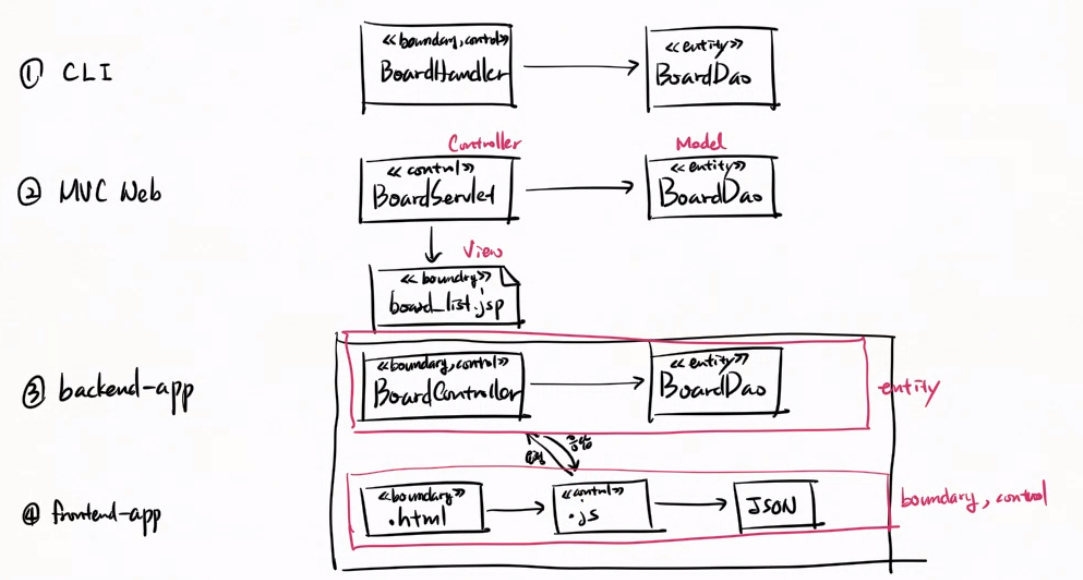 ① CLI
<<boundary, control>>
BoardHandler
<<entity>>
BoardDao
② MVC Web
Controller
<<control>>
BoardServlet
Model
<<entity>>
BoardDao
View
<<boundry>>
board_list.jsp
③ backend-app
<<boundary, control>>
BoardController
<<entity>>
BoardDao
entity
요청
응답
④ frontend-app
<<boundary>>
.html
<<control>>
.js
JSON
boundary, control